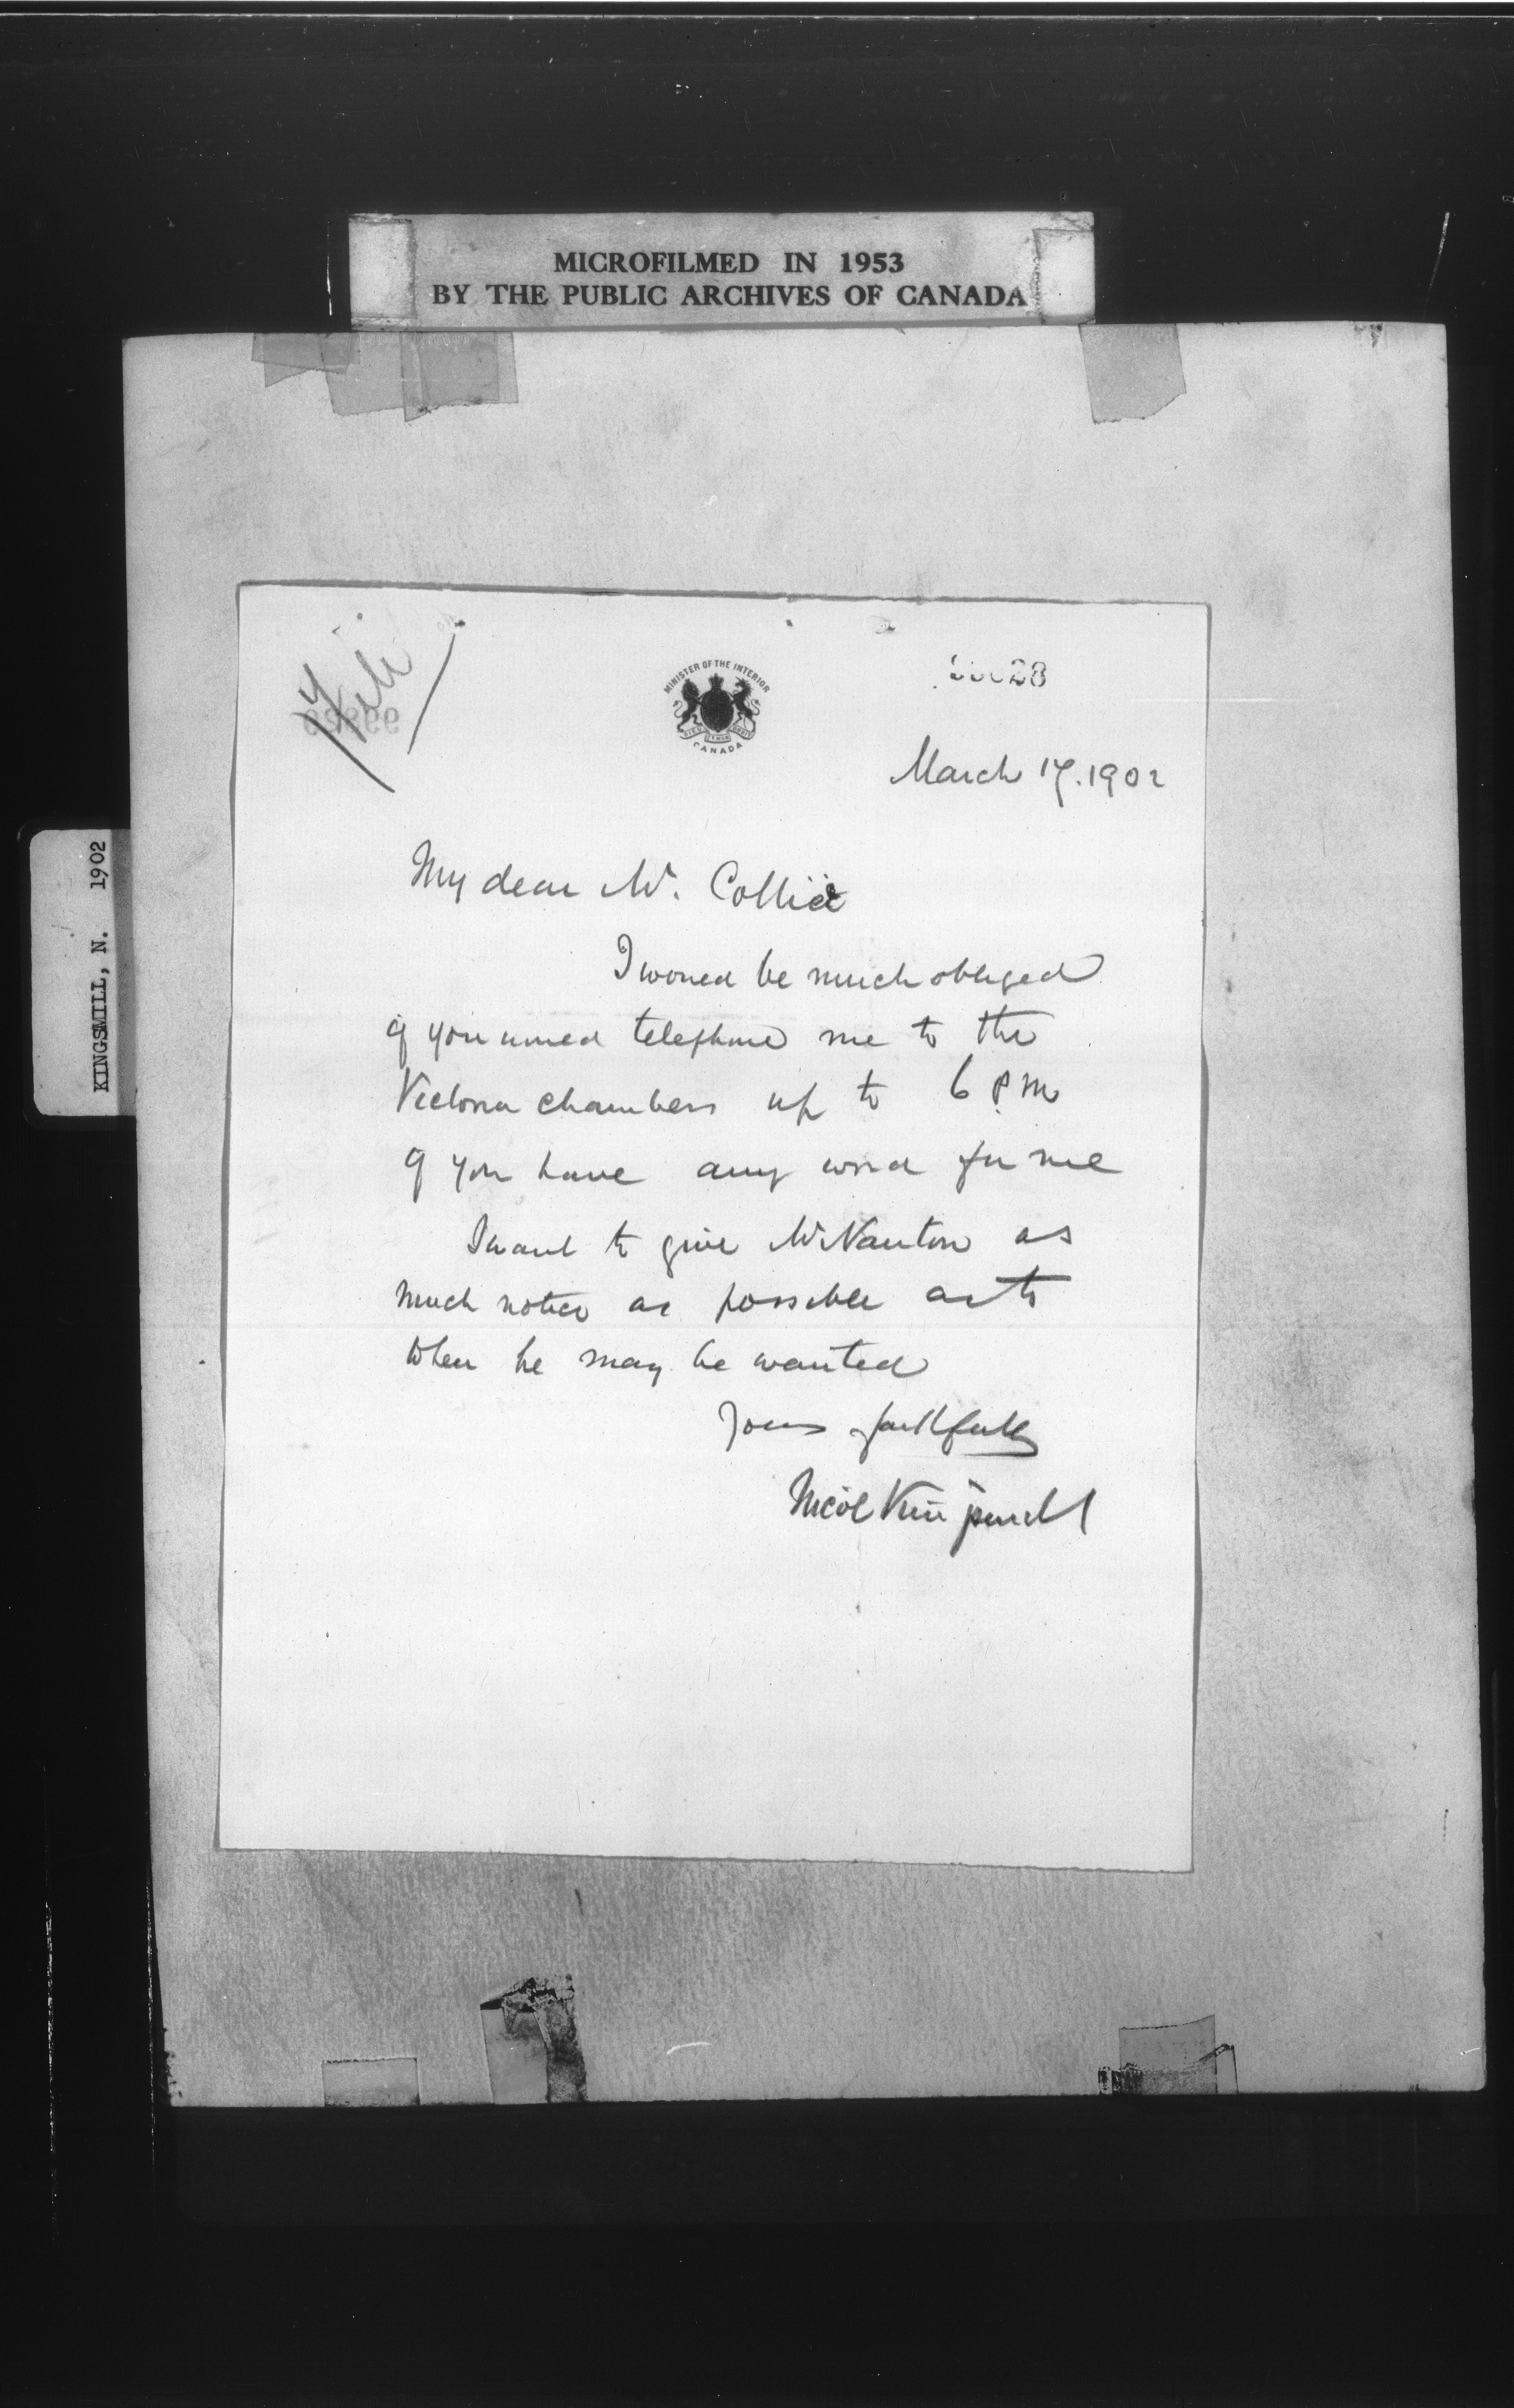 MICROFILMED IN 1953
BY THE PUBLIC ARCHIVES OF CANADA
KINGSMILL, N. 1902
File
MINISTER OF THE INTERIOR
CANADA
28
March 17. 1902
My dear Mr. Collier
I would be much obliged
if you would telephone me to the
Victoria chambers up to 6 P.M
if you have any word for me
I want to give Mr Nanton as
much notice as possible as to
when he may be wanted
Yours faithfully
Nicol Kingsmill